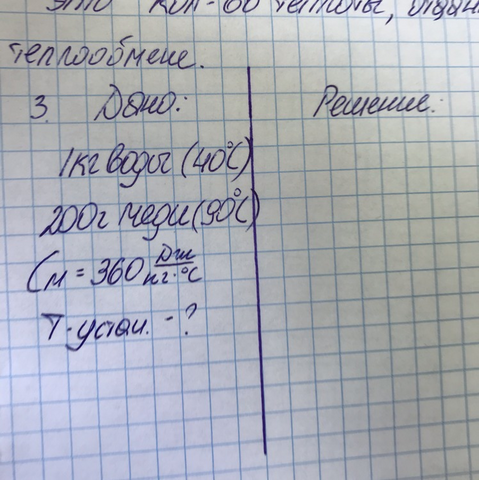 это кол-во теплоты,
теплообмене.
3. Дано: Решение:
1кг воды (40°C)
200г меди (90°C)
Cм = 360 Дж/кг·°C
T·устан. - ?